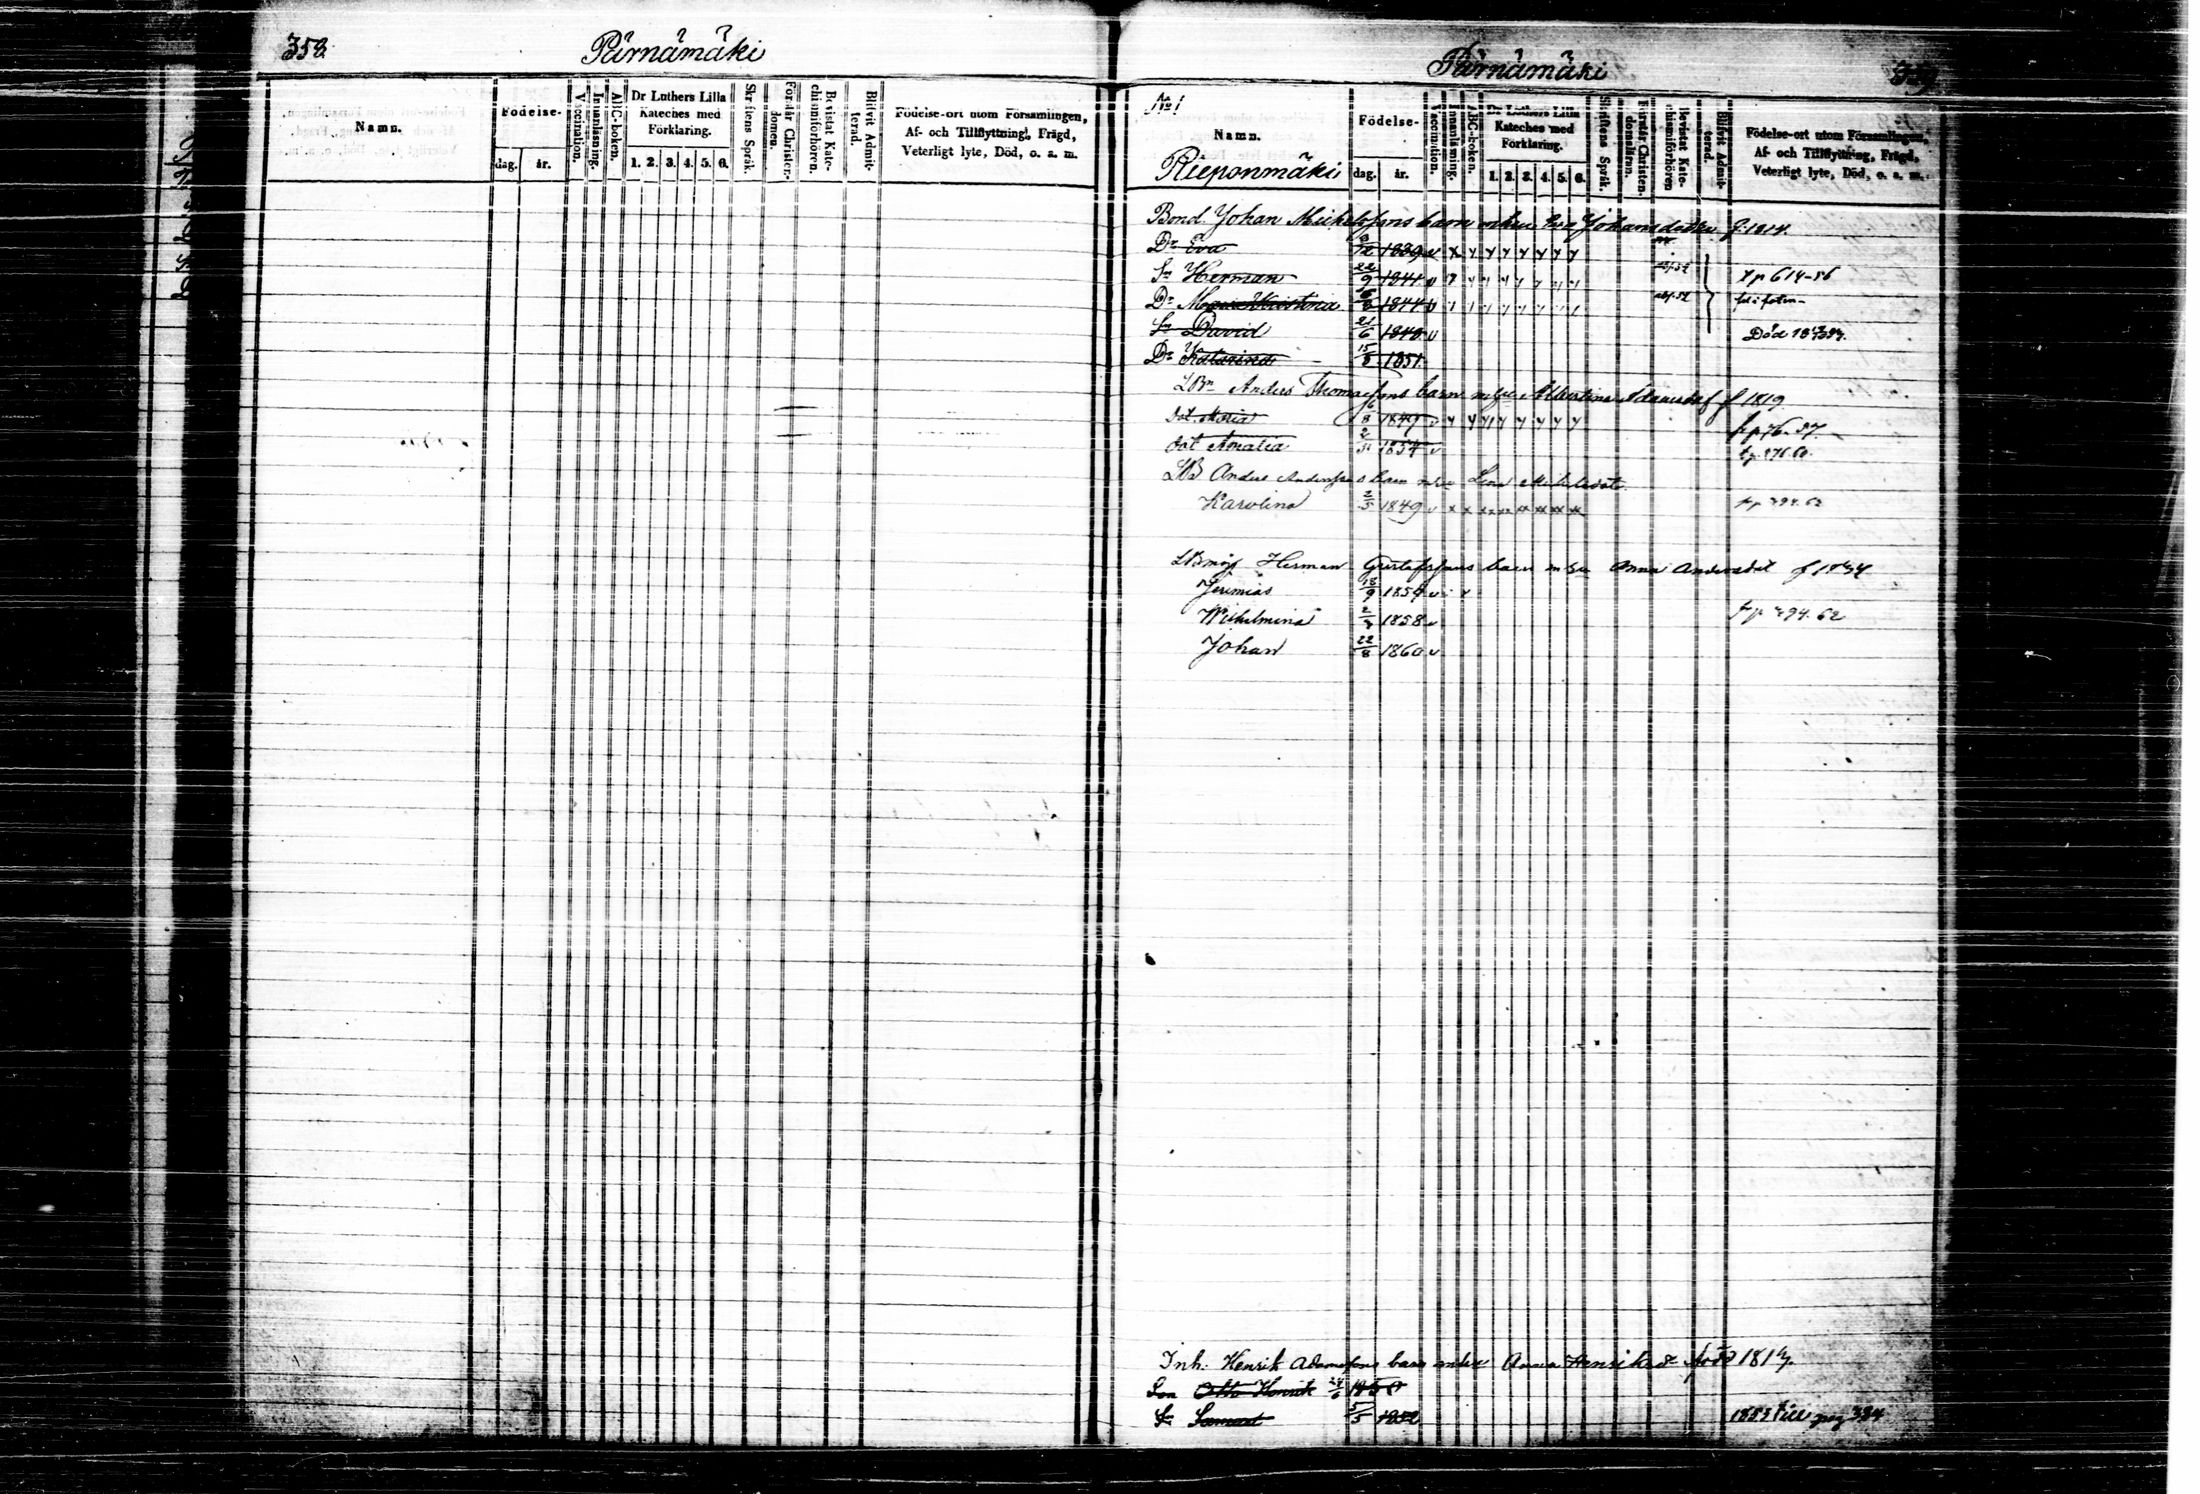 358.
Pärnämäki
Namn.
Födelse-
dag.
år.
Vaccination.
Innanläsning.
ABC-boken.
Dr Luthers Lilla
Kateches med
Förklaring.
1. 2. 3. 4. 5. 6.
Skriftens Språk.
Förstår Christen-
domen.
Bevistat Kate-
chismiförhören.
Blifvit Admit-
terad.
Födelse-ort utom Församlingen,
Af- och Tillflyttning, Frägd,
Veterligt lyte, Död, o. a. m.
Pärnämäki
359
No 1
Namn.
Rieponmäki
Födelse-
dag.
år.
Vaccination.
Innanläsning.
ABC-boken.
Dr Luthers Lilla
Kateches med
Förklaring.
1. 2. 3. 4. 5. 6.
Skriftens Språk.
Förstår Christen-
domsläran.
Bevistat Kate-
chismiförhören
Blifvit Admit-
terad.
Födelse-ort utom Församlingen,
Af- och Tillflyttning, Frägd,
Veterligt lyte, Död, o. a. m.
Bond. Johan Michelssons barn m hu Eva Johansdotter f. 1814.
Dr Eva 1839 v x y y y y y y y
Sn Herman 22/9 1841 v y y y y y y y y f p 614-56
Dr Maria Kristina 1844 v
Sn David 21/6 1848 v Död
Dr Katarina 15/8 1851.
LBn Anders Thomassons barn m hu Albertina Adamsdot f 1819
Dot. Maria 6/8 1849 v y y y y y y y y f p 76-57.
Dot Amalia 1854 v
LB Anders Anderssons barn m hu Lena Mikelsdotr.
Karolina 2/5 1849 v x x x x x x x x f p 294. 62
LBmåg Herman Gustafssons barn m hu Anna Andersdot f 1834
Jeremias 18/9 1854 v
Wilhelmina 1858 v f p 294. 62
Johan 22/8 1860 v
Inh. Henrik Adamssons barn m hu Anna Henriksdr född 1817.
Son Otto Henrik 24/6 1850
Sn 5/5 1852 1853 till pag 384